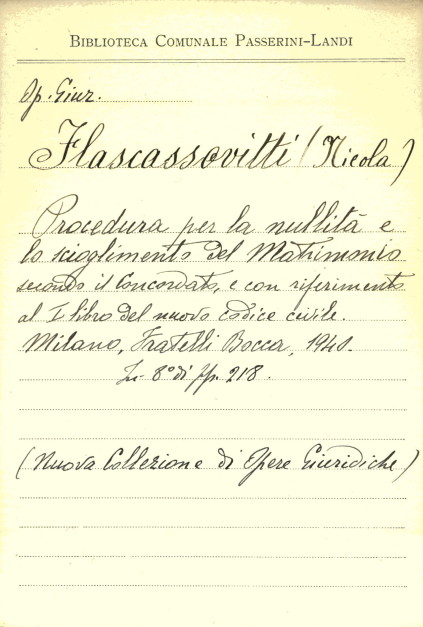 BIBLIOTECA COMUNALE PASSERINI-LANDI
Op. Giur.
Flascassovitti (Nicola)
Procedura per la nullità e
lo scioglimento del Matrimonio
secondo il Concordato, e con riferimento
al I libro del nuovo codice civile.
Milano, Fratelli Bocca, 1940.
In 8° di pp. 218.
(Nuova Collezione di Opere Giuridiche)